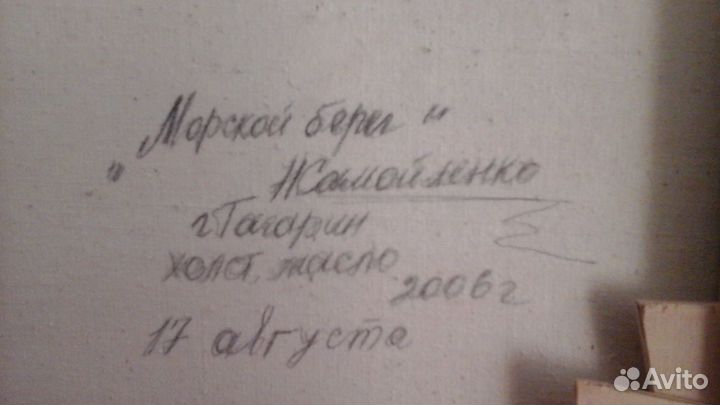 „Морской берег"
НСамойленко
г Гагарин
холст, масло
2006 г
17 августа
Avito